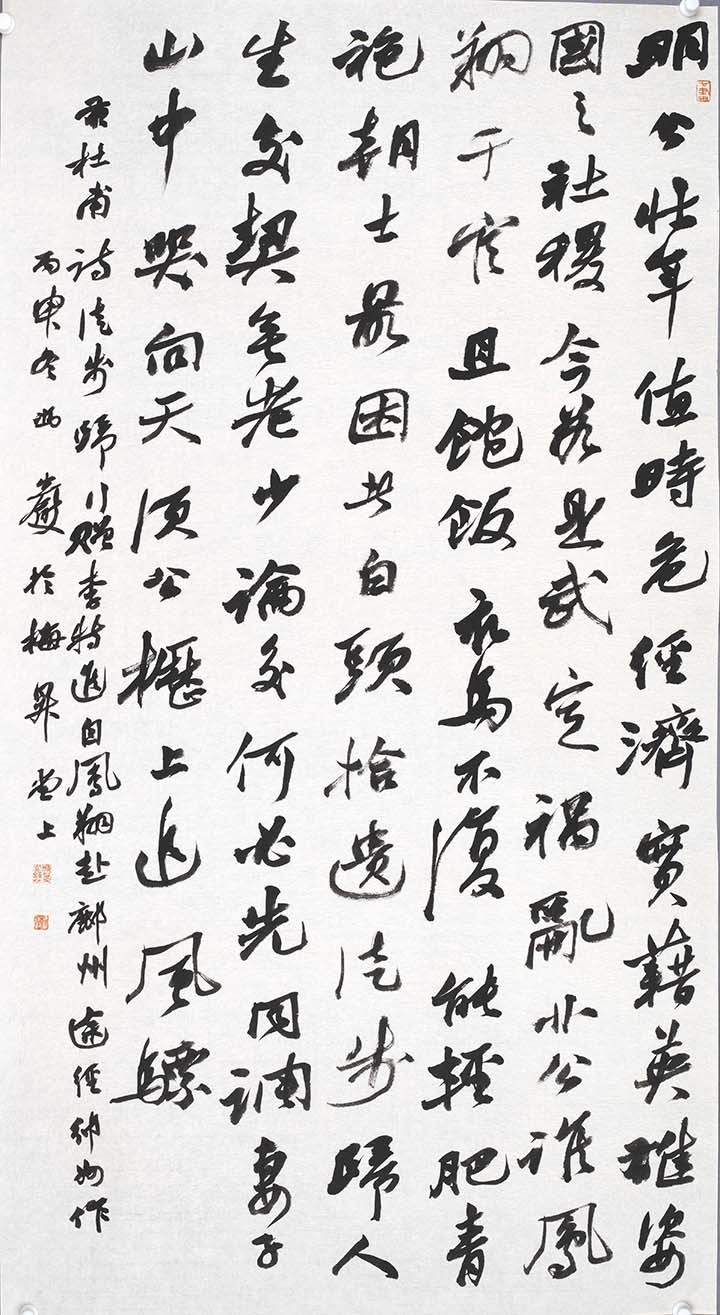 明公壯年值時危經濟實藉英雄姿
國之社稷今若是武定禍亂非公誰鳳
翔千官且飽飯衣馬不復能輕肥青
袍朝士最困者白頭拾遺徒步歸人
生交契無老少論交何必先同調妻子
山中哭向天須公櫪上追風驃
杜甫詩徒步歸行贈李特進自鳳翔赴鄜州途經邠州作
丙申冬於梅堂上